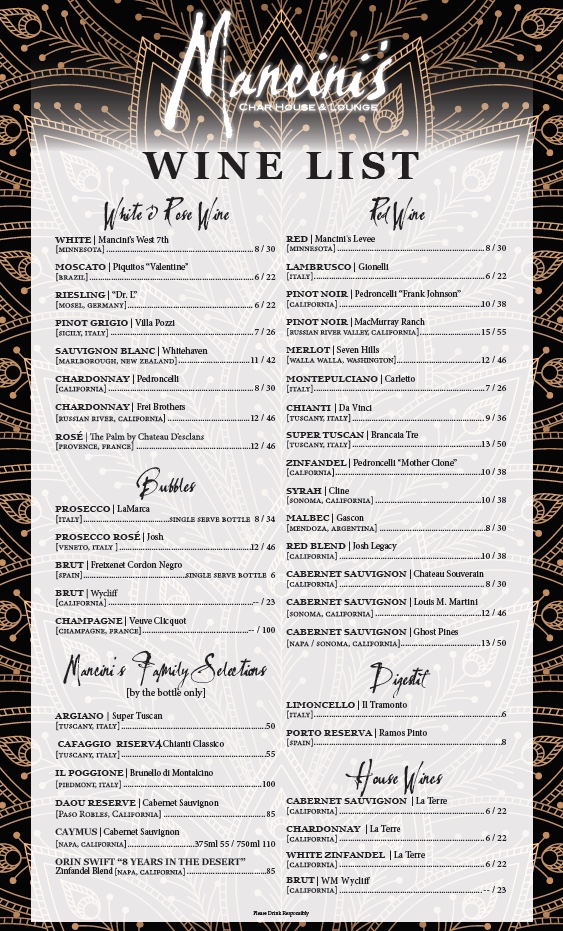 Mancini's
Char House & Lounge
WINE LIST
White & Rose Wine
WHITE | Mancini's West 7th
[MINNESOTA] 8 / 30
MOSCATO | Piquitos “Valentine”
[BRAZIL] 6 / 22
RIESLING | “Dr. L”
[MOSEL, GERMANY] 6 / 22
PINOT GRIGIO | Villa Pozzi
[SICILY, ITALY] 7 / 26
SAUVIGNON BLANC | Whitehaven
[MARLBOROUGH, NEW ZEALAND] 11 / 42
CHARDONNAY | Pedroncelli
[CALIFORNIA] 8 / 30
CHARDONNAY | Frei Brothers
[RUSSIAN RIVER, CALIFORNIA] 12 / 46
ROSÉ | The Palm by Chateau D'esclans
[PROVENCE, FRANCE] 12 / 46
Bubbles
PROSECCO | LaMarca
[ITALY] SINGLE SERVE BOTTLE 8 / 34
PROSECCO ROSÉ | Josh
[VENETO, ITALY ] 12 / 46
BRUT | Freixenet Cordon Negro
[SPAIN] SINGLE SERVE BOTTLE 6
BRUT | Wycliff
[CALIFORNIA] -- / 23
CHAMPAGNE | Veuve Clicquot
[CHAMPAGNE, FRANCE] -- / 100
Mancini's Family Selections
[by the bottle only]
ARGIANO | Super Tuscan
[TUSCANY, ITALY] 50
CAFAGGIO RISERVA Chianti Classico
[TUSCANY, ITALY] 55
IL POGGIONE | Brunello di Montalcino
[PIEDMONT, ITALY] 100
DAOU RESERVE | Cabernet Sauvignon
[PASO ROBLES, CALIFORNIA] 85
CAYMUS | Cabernet Sauvignon
[NAPA, CALIFORNIA] 375ml 55 / 750ml 110
ORIN SWIFT “8 YEARS IN THE DESERT”
Zinfandel Blend [NAPA, CALIFORNIA] 85
Red Wine
RED | Mancini's Levee
[MINNESOTA] 8 / 30
LAMBRUSCO | Gionelli
[ITALY] 6 / 22
PINOT NOIR | Pedroncelli “Frank Johnson”
[CALIFORNIA] 10 / 38
PINOT NOIR | MacMurray Ranch
[RUSSIAN RIVER VALLEY, CALIFORNIA] 15 / 55
MERLOT | Seven Hills
[WALLA WALLA, WASHINGTON] 12 / 46
MONTEPULCIANO | Carletto
[ITALY] 7 / 26
CHIANTI | Da Vinci
[TUSCANY, ITALY] 9 / 36
SUPER TUSCAN | Brancaia Tre
[TUSCANY, ITALY] 13 / 50
ZINFANDEL | Pedroncelli “Mother Clone”
[CALFORNIA] 10 / 38
SYRAH | Cline
[SONOMA, CALIFORNIA] 10 / 38
MALBEC | Gascon
[MENDOZA, ARGENTINA] 8 / 30
RED BLEND | Josh Legacy
[CALIFORNIA] 10 / 38
CABERNET SAUVIGNON | Chateau Souverain
[CALIFORNIA] 8 / 30
CABERNET SAUVIGNON | Louis M. Martini
[SONOMA, CALIFORNIA] 12 / 46
CABERNET SAUVIGNON | Ghost Pines
[NAPA / SONOMA, CALIFORNIA] 13 / 50
Digestif
LIMONCELLO | Il Tramonto
[ITALY] 6
PORTO RESERVA | Ramos Pinto
[SPAIN] 8
House Wines
CABERNET SAUVIGNON | La Terre
[CALIFORNIA] 6 / 22
CHARDONNAY | La Terre
[CALIFORNIA] 6 / 22
WHITE ZINFANDEL | La Terre
[CALIFORNIA] 6 / 22
BRUT | WM Wycliff
[CALIFORNIA] -- / 23
Please Drink Responsibly